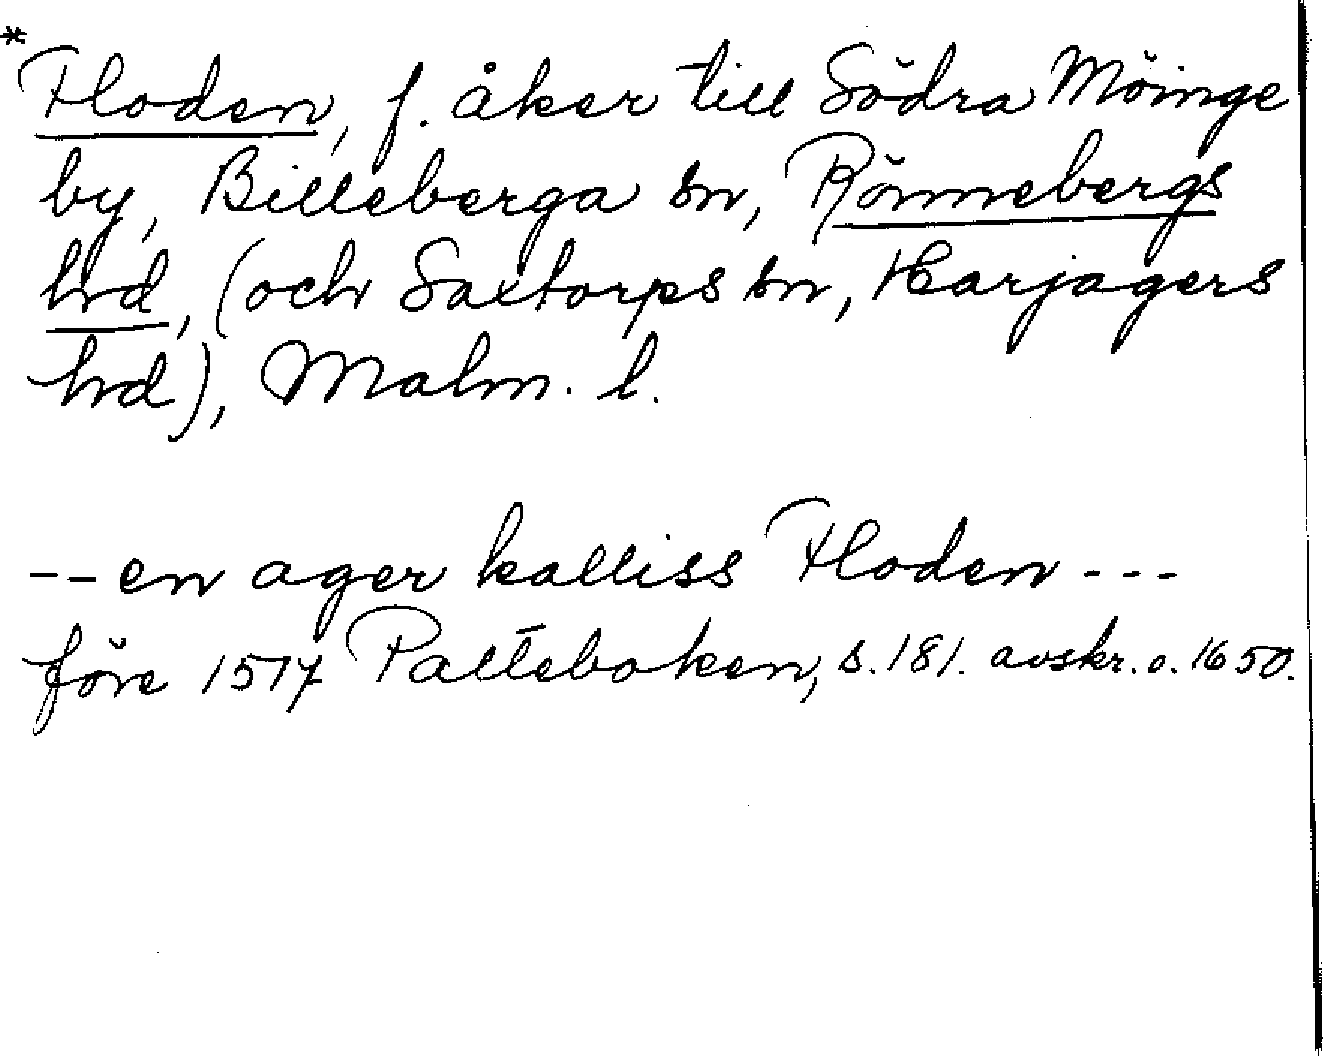 *
Floden, f. åker till Södra Möinge
by, Billeberga sn, Rönnebergs
hrd, (och Saxtorps sn, Harjagers
hrd), Malm. l.
-- en ager kalliss Floden ---
före 1517 Palteboken, s. 181. avskr. o. 1650.